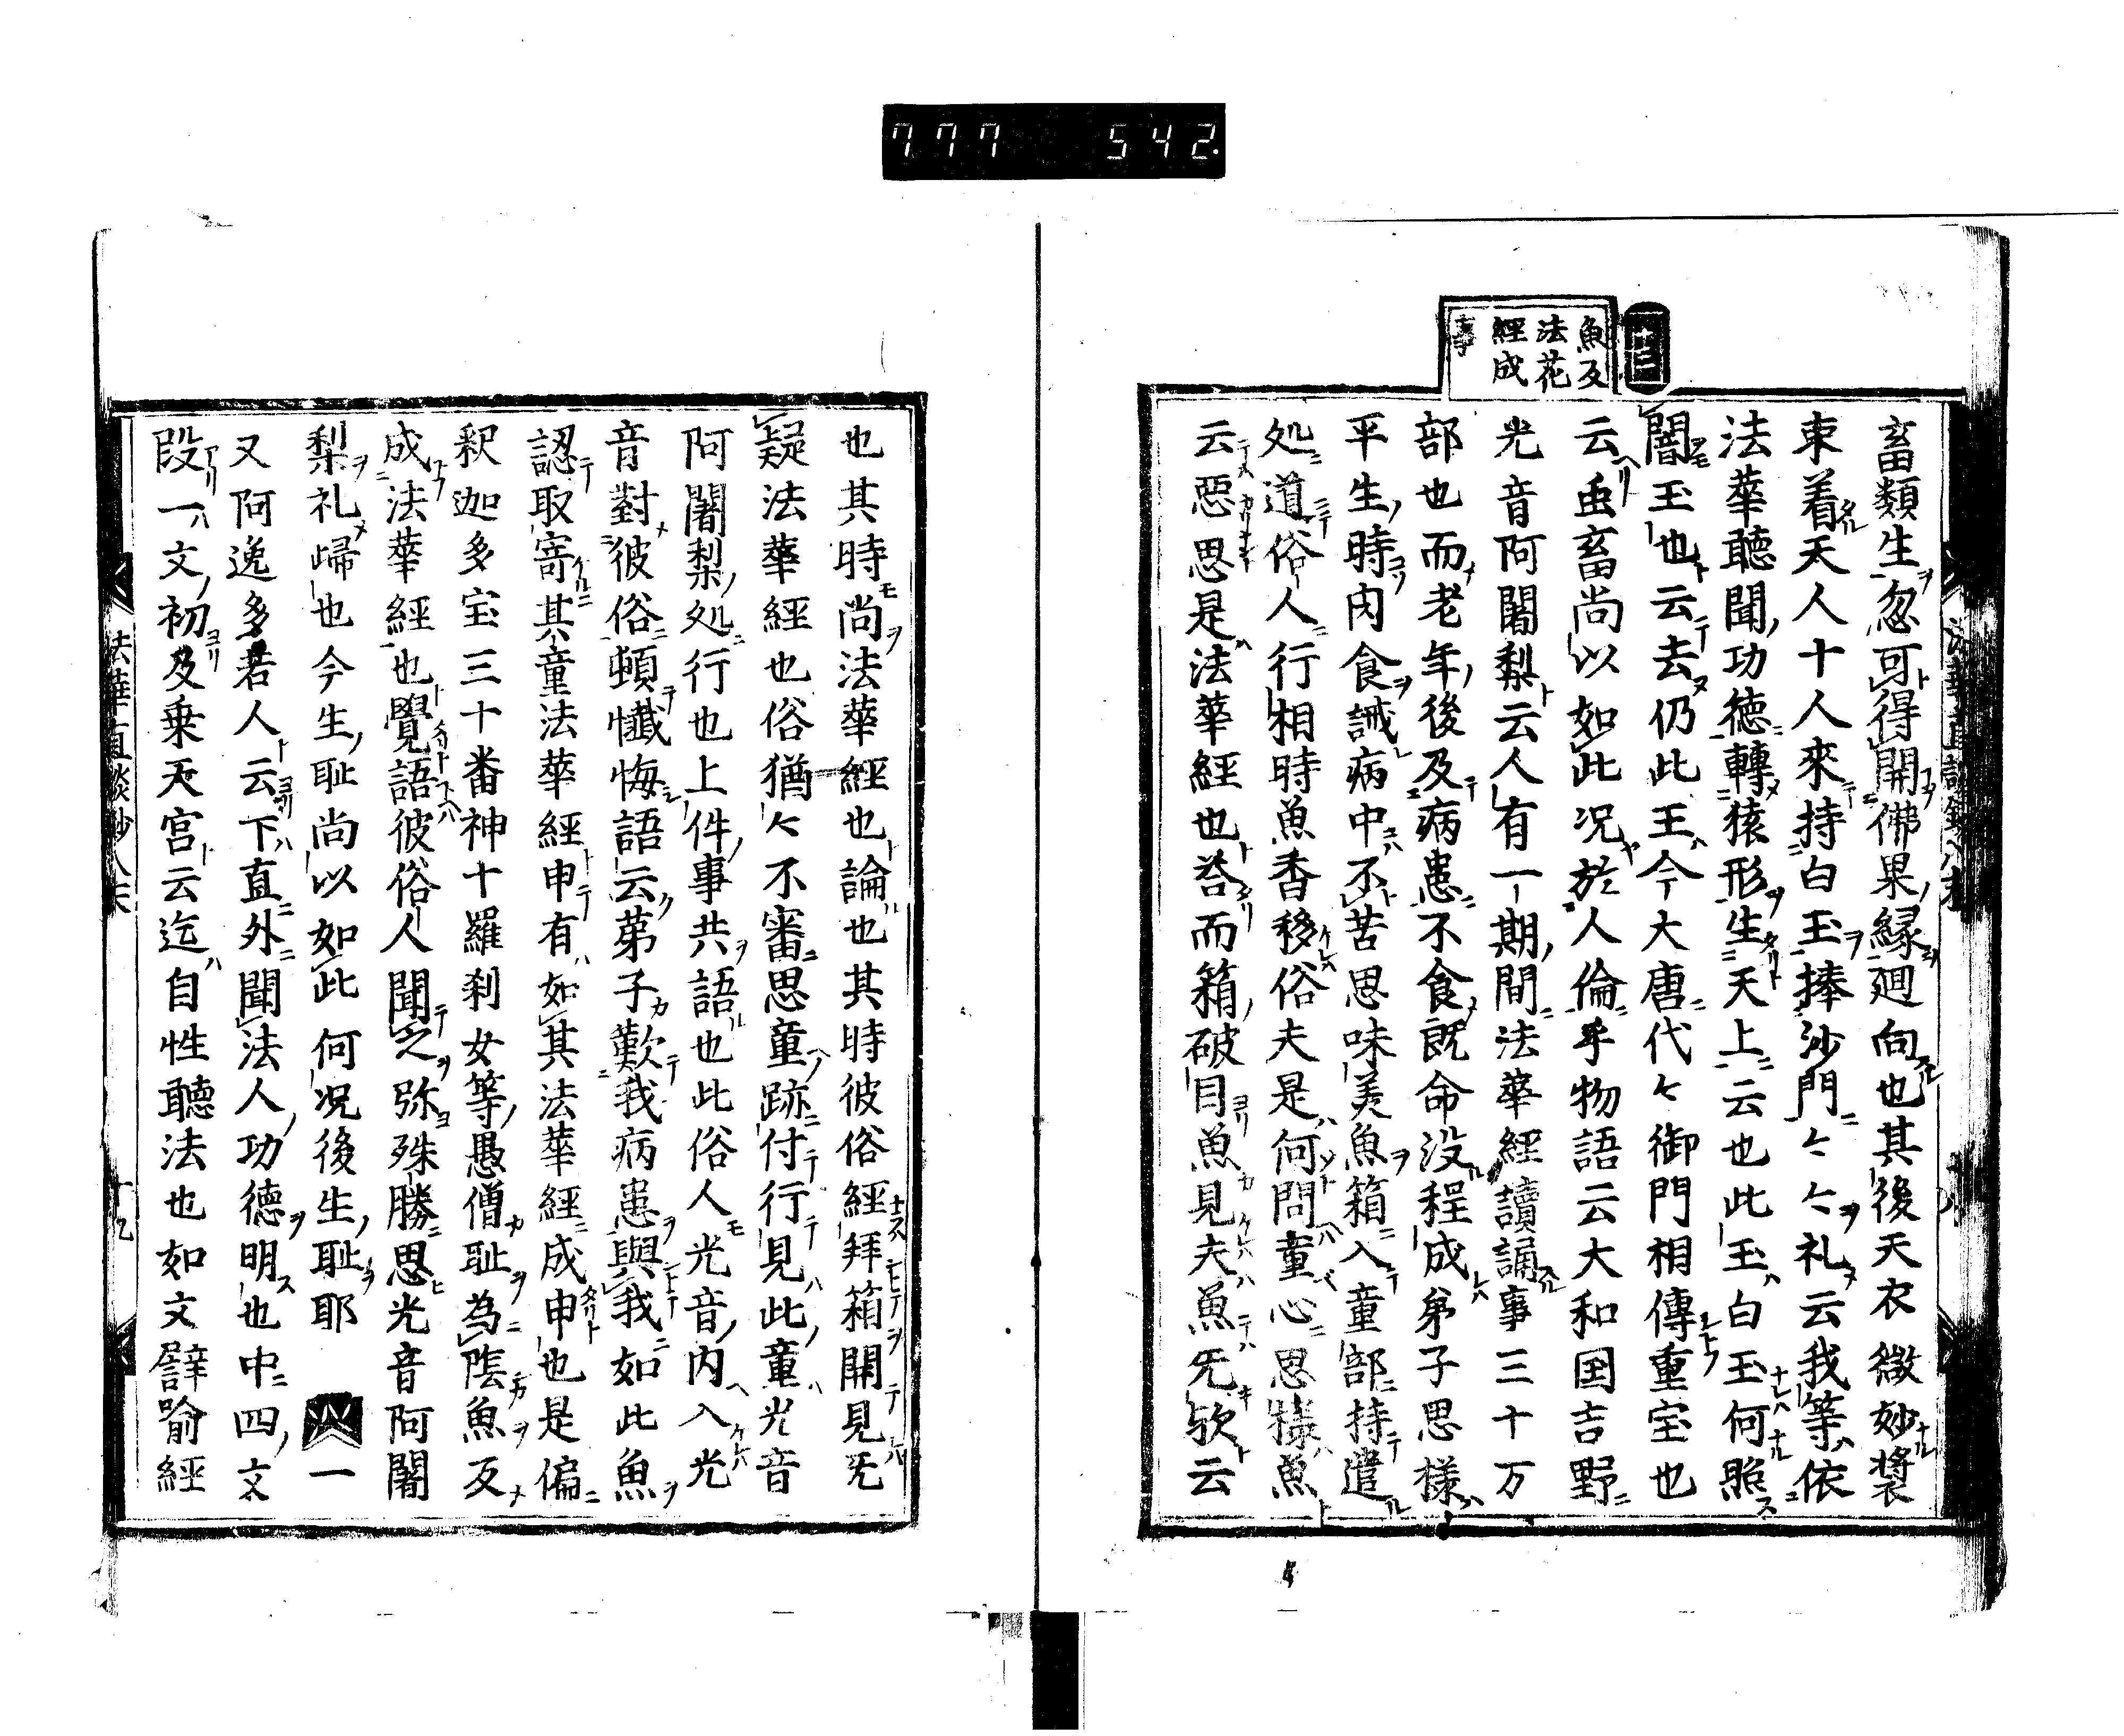 777 542.
廿三
魚反
法花
經成
事
畜類生忽可得開佛果縁廻向也其後天衣微妙裝
束着天人十人來持白玉捧沙門〻〻礼云我等依
法華聽聞功徳轉猿形生天上云也此玉白玉何照
闇玉也云去仍此王今大唐代〻御門相傳重宝也
云䖝畜尚以如此况於人倫乎物語云大和国吉野
光音阿闍梨云人有一期間法華經讀誦事三十万
部也而老年後及病患不食既命没程成弟子思様
平生時肉食誡病中不苦思味美魚箱入童部持遣
処道俗人行相時魚香移俗夫是何問童心思様魚
云悪思是法華經也荅而箱破目魚見夫魚旡欤云
也其時尚法華經也論也其時彼俗經拜箱開見旡
疑法華經也俗猶〻不審思童跡付行見此童光音
阿闍梨処行也上件事共語也此俗人光音内入光
音對彼俗頓懺悔語云苐子歎我病患與我如此魚
認取寄其童法華經申有如其法華經成申也是偏
釈迦多宝三十番神十羅刹女等愚僧耻為隂魚反
成法華經也覺語彼俗人聞之弥殊勝思光音阿闍
梨礼歸也今生耻尚以如此何况後生耻耶 一
又阿逸多若人云下直外聞法人功徳明也中四文
段一文初及乗天宮云迄自性聽法也如文譬喻經
法華直談鈔八末
十九